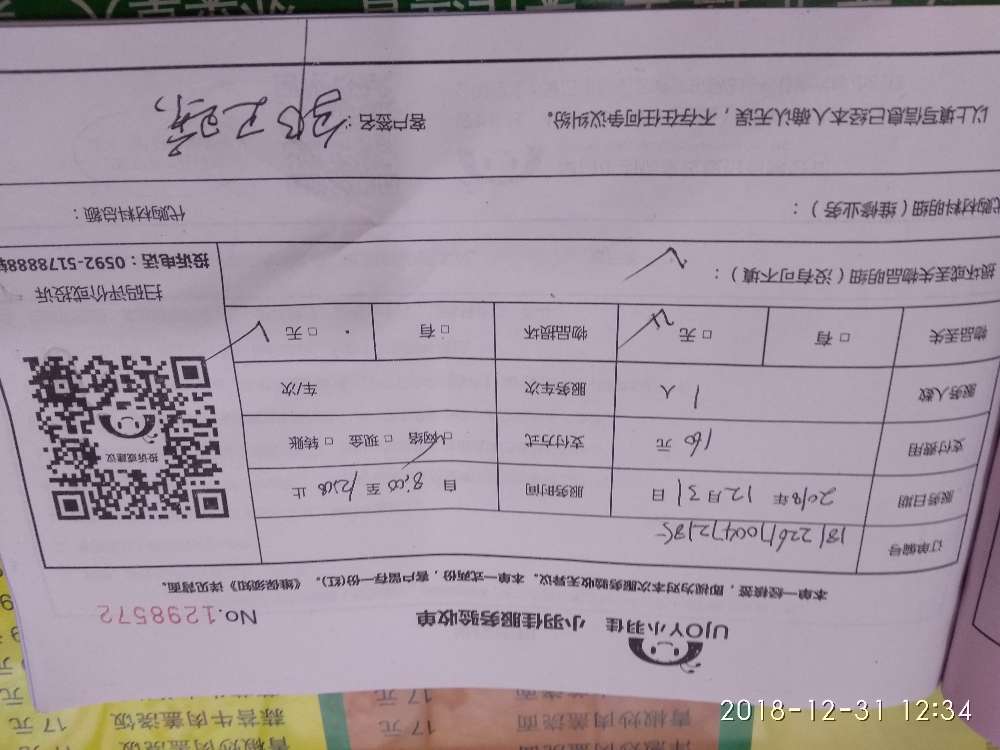 UJOY小羽佳 小羽佳服务验收单 No.1298572
本单一经核签，即视为对本次服务验收无异议。本单一式两份，客户留存一份(红)。《维保须知》详见背面。
订单编号 181226170047218
服务日期 2018年 12月31日 服务时间 自 8:00 至 12:00 止
支付费用 160 元 支付方式 网络 □ 现金 □ 转账
服务人数 1 人 服务车次 车/次
物品丢失 □ 有 □ 无 物品损坏 □ 有 □ 无
投诉或建议
扫码评价或投诉
投诉电话：0592-5178888
损坏或丢失物品明细（没有可不填）：
代购材料明细（维修业务）： 代购材料总额：
以上填写信息已经本人确认无误，不存在任何争议纠纷。 客户签名：
青椒炒肉盖浇面 17 元
蒜苔牛肉盖浇饭 17 元
青椒炒肉盖浇饭 17 元
2018-12-31 12:34